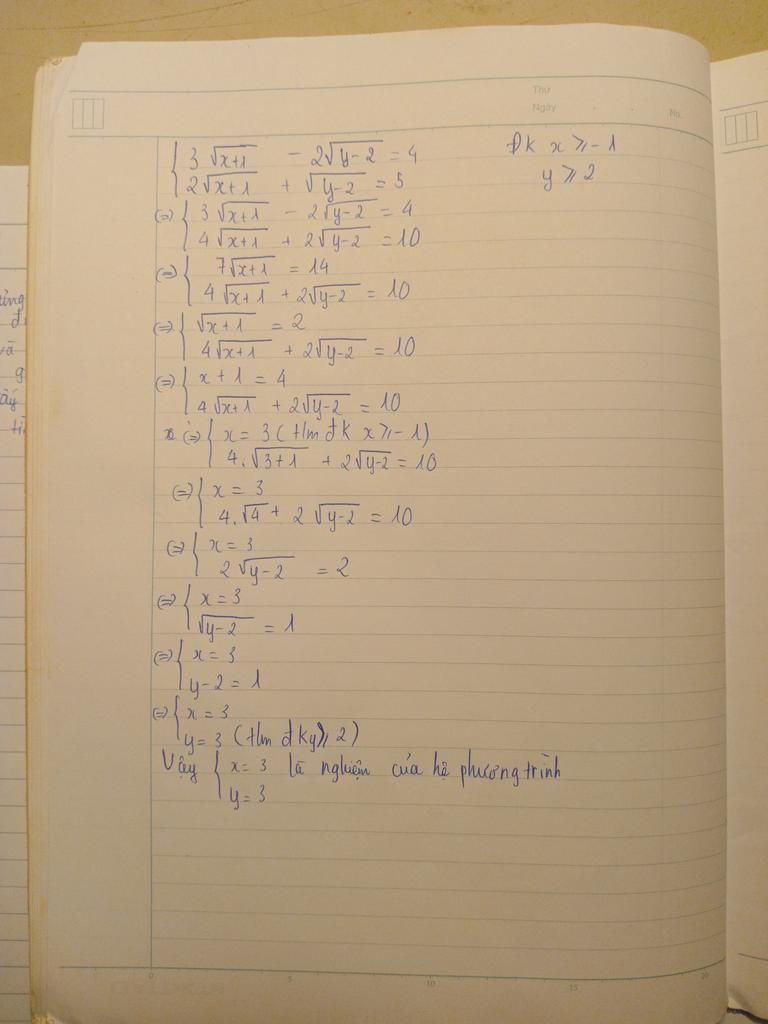 Thứ
Ngày
No.
{ 3√(x+1) - 2√(y-2) = 4 ĐK x ⩾ -1
2√(x+1) + √(y-2) = 5 y ⩾ 2
(=) { 3√(x+1) - 2√(y-2) = 4
4√(x+1) + 2√(y-2) = 10
(=) { 7√(x+1) = 14
4√(x+1) + 2√(y-2) = 10
(=) { √(x+1) = 2
4√(x+1) + 2√(y-2) = 10
(=) { x + 1 = 4
4√(x+1) + 2√(y-2) = 10
(=) { x = 3 (tlm đk x ⩾ -1)
4.√(3+1) + 2√(y-2) = 10
(=) { x = 3
4.√4 + 2√(y-2) = 10
(=) { x = 3
2√(y-2) = 2
(=) { x = 3
√(y-2) = 1
(=) { x = 3
y - 2 = 1
(=) { x = 3
y = 3 (tlm đk y ⩾ 2)
Vậy { x = 3 là nghiệm của hệ phương trình
y = 3
0 5 10 15 20